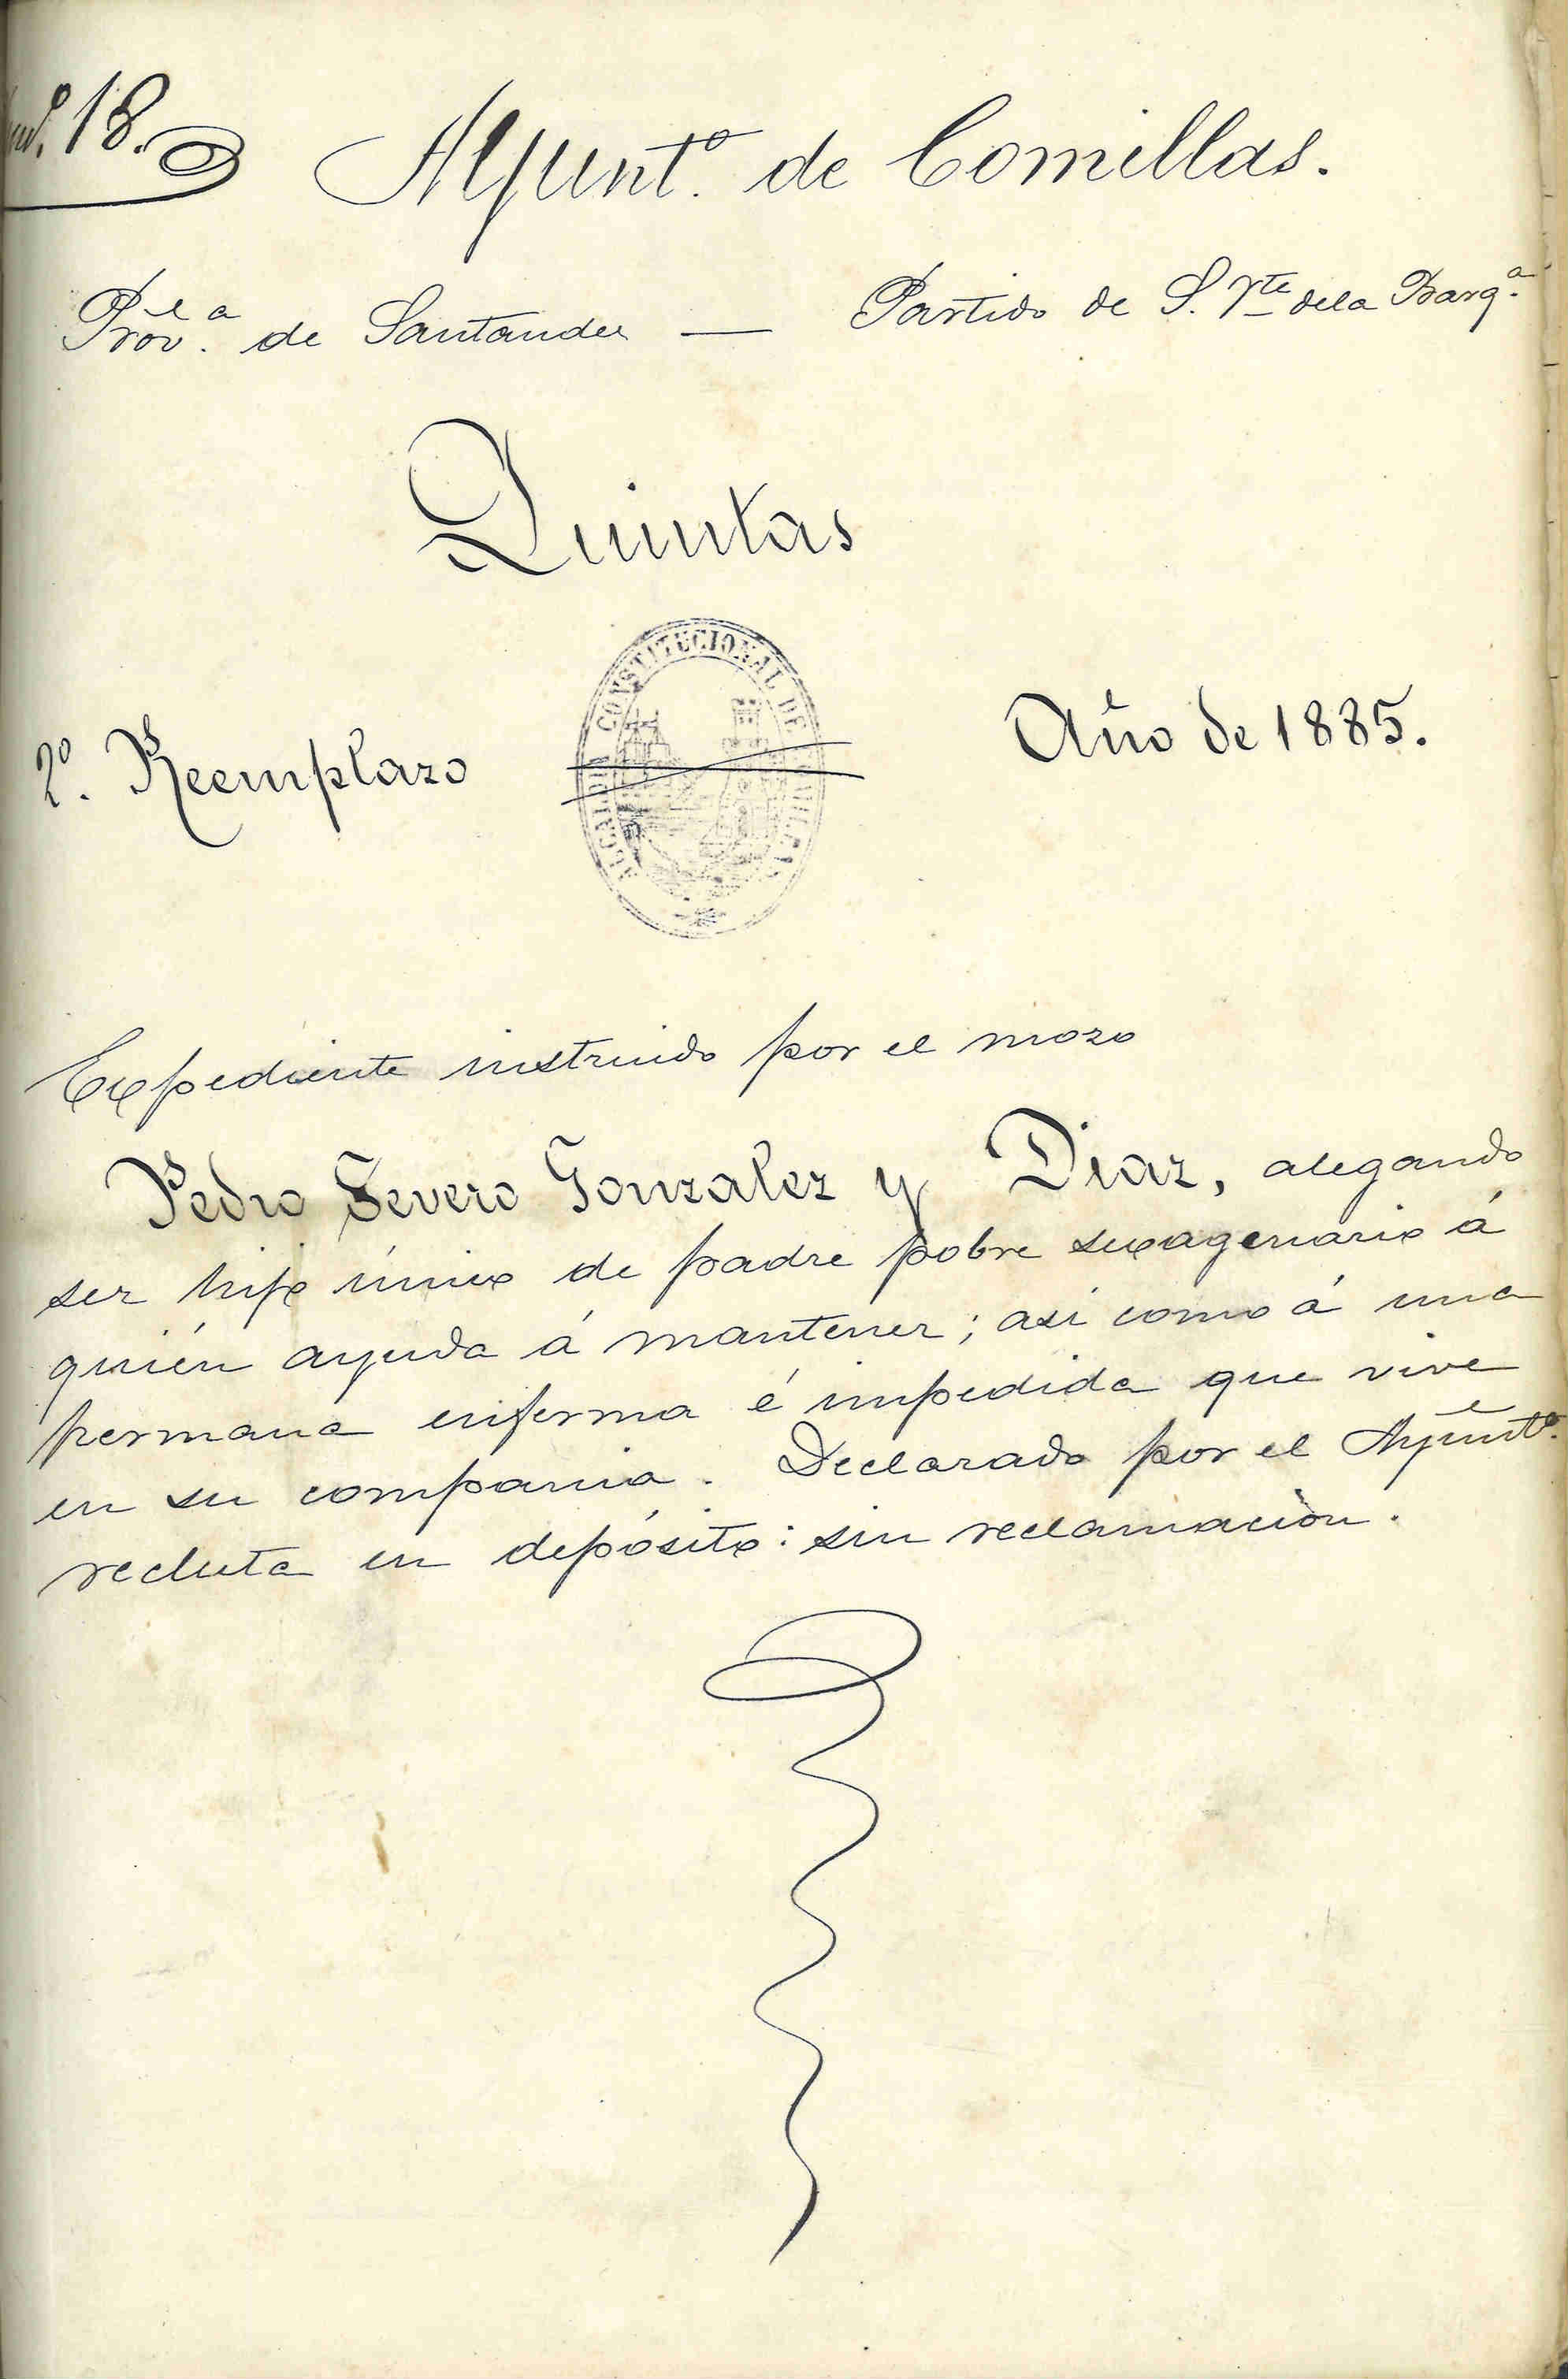 Num.º 18.
Ayunt.º de Comillas.
Prov.ª de Santander — Partido de S. Vte de la Barq.ª
Quintas
ALCALDIA CONSTITUCIONAL DE COMILLAS
2º. Reemplazo
Año de 1885.
Expediente instruido por el mozo
Pedro Severo Gonzalez y Diaz, alegando
ser hijo único de padre pobre sexagenario á
quién ayuda á mantener; asi como á una
hermana enferma é impedida que vive
en su compania. Declarado por el Ayuntº.
recluta en depósito: sin reclamaciòn.